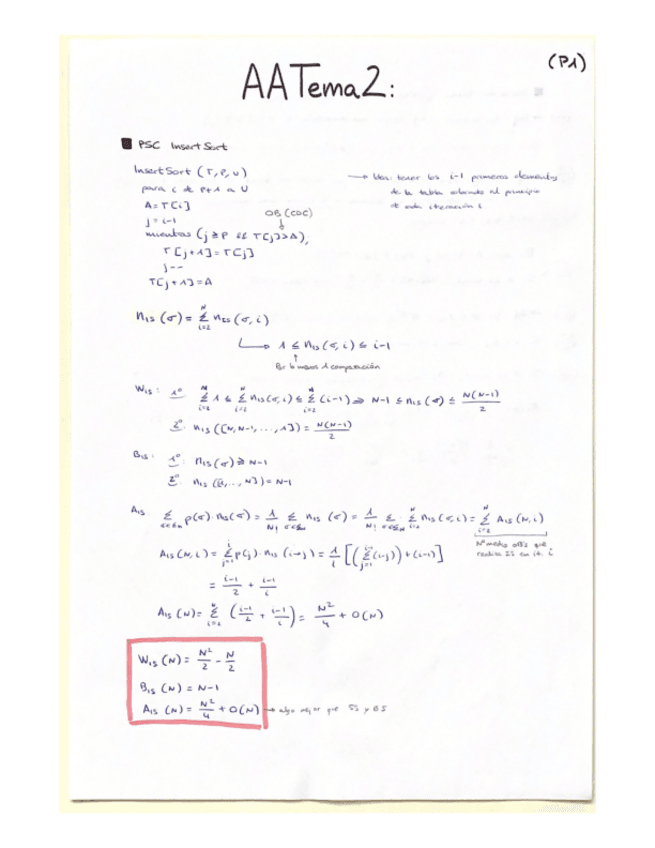 (P1)
AA Tema 2:
■ PSC InsertSort
InsertSort (T, P, U)
para i de P+1 a U
A = T[i]
j = i-1
OB (CDC)
mientras (j ≥ P && T[j] > A);
T[j+1] = T[j]
j--
T[j+1] = A
→ Idea: tener los i-1 primeros elementos
de la tabla ordenados al principio
de cada iteración i.
n_IS(σ) = Σ_{i=2}^{N} n_IS(σ, i)
↳ 1 ≤ n_IS(σ, i) ≤ i-1
Por lo menos 1 comparación
W_IS: 1º Σ_{i=2}^{N} 1 ≤ Σ_{i=2}^{N} n_IS(σ, i) ≤ Σ_{i=2}^{N} (i-1) ⇒ N-1 ≤ n_IS(σ) ≤ N(N-1)/2
2º n_IS([N, N-1, ..., 1]) = N(N-1)/2
B_IS: 1º: n_IS(σ) ≥ N-1
2º n_IS([1, ..., N]) = N-1
A_IS Σ_{σ∈Σ_N} p(σ)·n_IS(σ) = 1/N! Σ_{σ∈Σ_N} n_IS(σ) = 1/N! Σ_{σ∈Σ_N} Σ_{i=2}^{N} n_IS(σ, i) = Σ_{i=2}^{N} A_IS(N, i)
Nº medio OBs que
realiza IS en it. i
A_IS(N, i) = Σ_{j=1}^{i} p(j)·n_IS(i→j) = 1/i [(Σ_{j=1}^{i-1} (i-j)) + (i-1)]
= (i-1)/2 + (i-1)/i
A_IS(N) = Σ_{i=2}^{N} ((i-1)/2 + (i-1)/i) = N²/4 + O(N)
W_IS(N) = N²/2 - N/2
B_IS(N) = N-1
A_IS(N) = N²/4 + O(N) → algo mejor que SS y BS